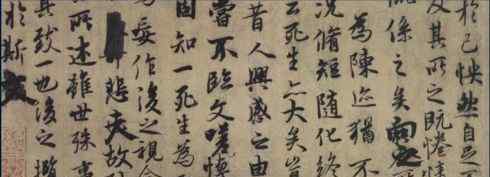 於己怏然自足不
及其所之既惓情
慨係之矣向之
為陳迹猶不
況脩短隨化終
云死生亦大矣豈
昔人興感之由
嘗不臨文嗟悼
固知一死生為
為妄作後之視今
悲夫故
所述雖世殊事
其致一也後之攬
於斯文